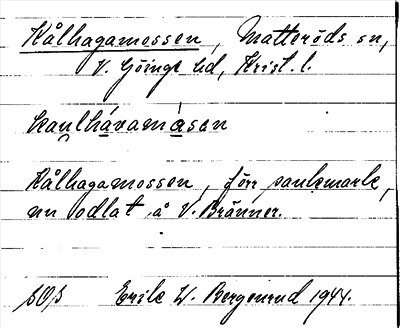 Kålhagamossen, Matteröds sn,
V. Göinge hd, Krist. l.
kau̯lhávamåsen
Kålhagamossen, förr sankmark,
nu odlat å V. Bränner.
Erik W. Bergenrud 1944.